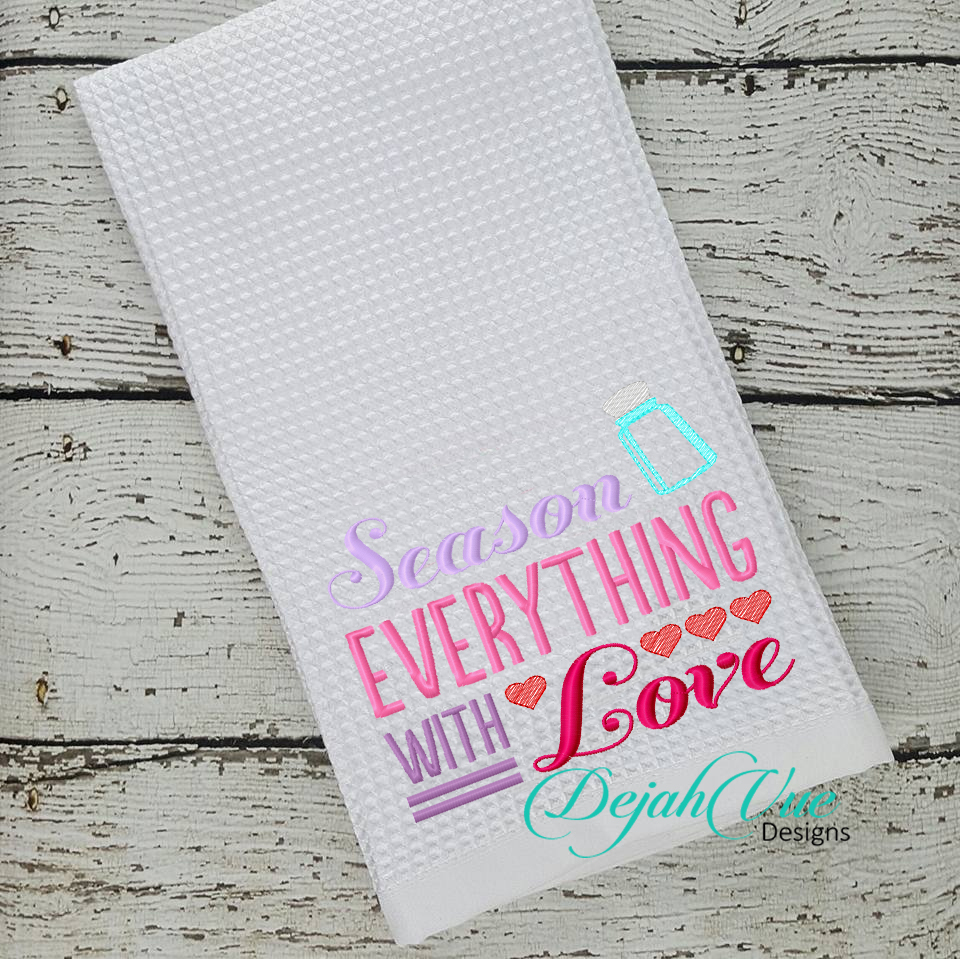 Season
EVERYTHING
WITH Love
DejahVue
Designs